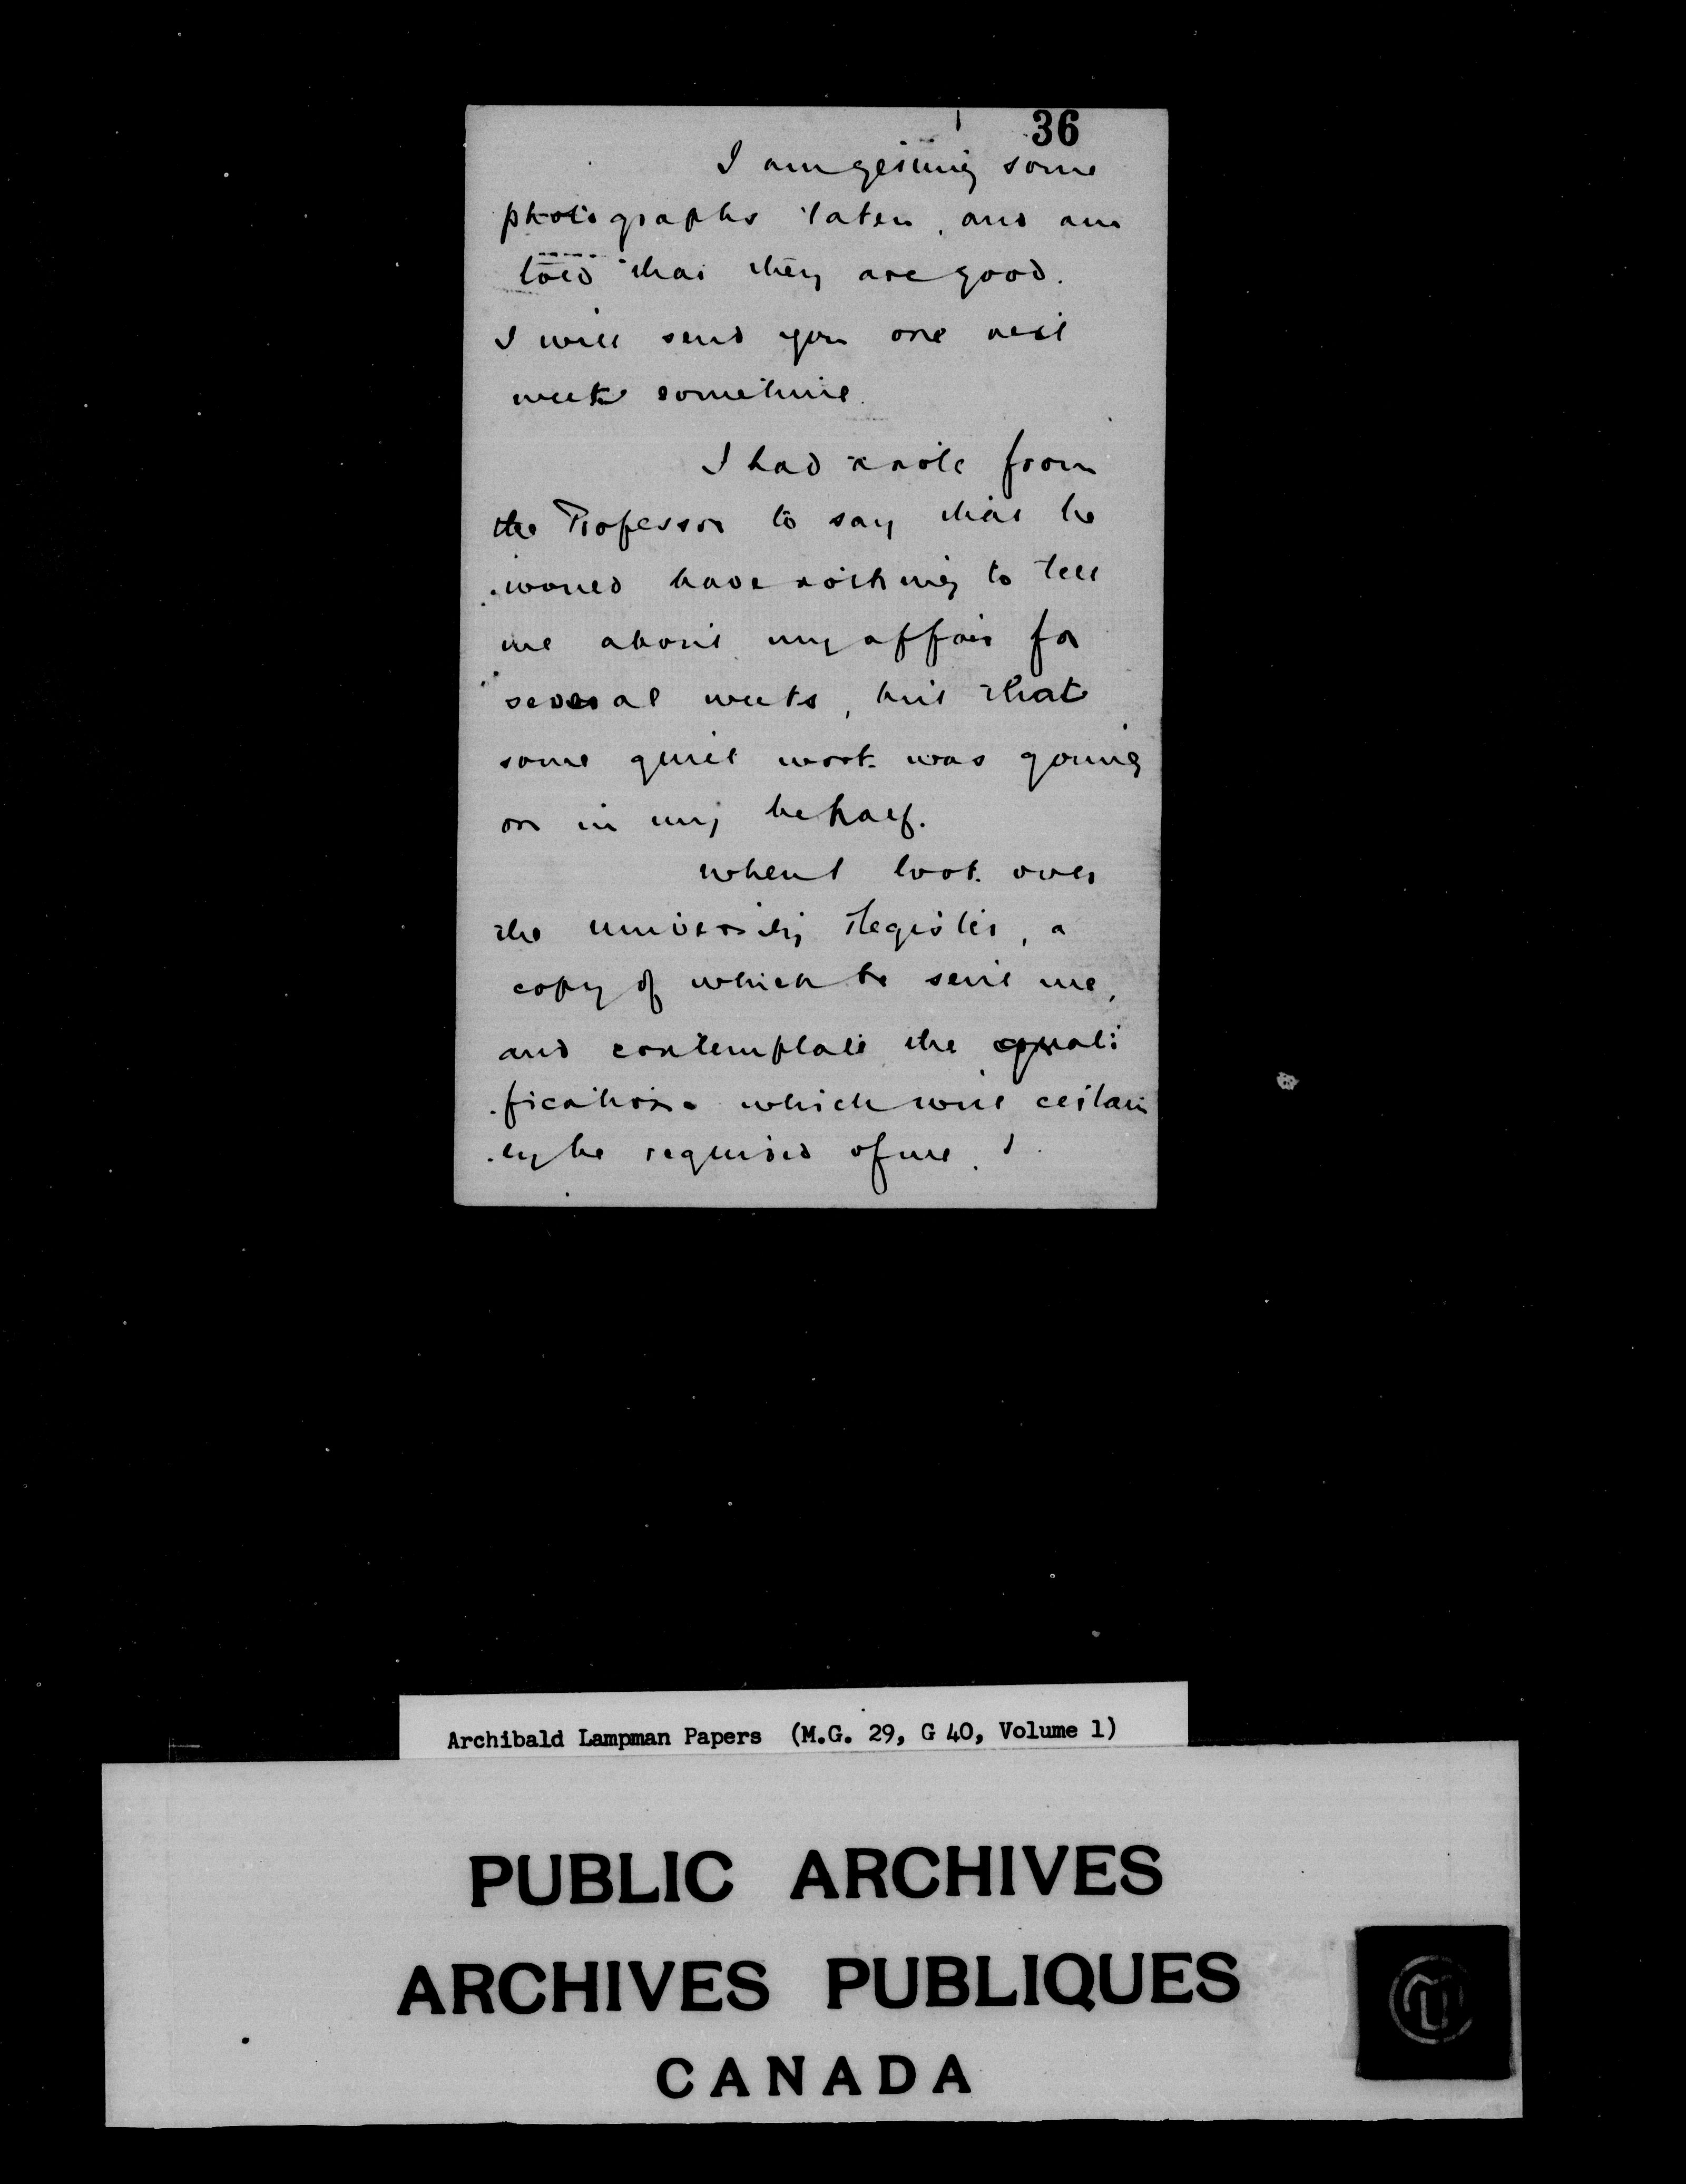 36
I am getting some
photographs taken, and am
told that they are good.
I will send you one next
week sometime.
I had a note from
the Professor to say that he
would have nothing to tell
me about my affair for
several weeks, but that
some quiet work was going
on in my behalf.
When I look over
the University Register, a
copy of which he sent me,
and contemplate the quali
fications which will certain
ly be required of me, I
Archibald Lampman Papers (M.G. 29, G 40, Volume 1)
PUBLIC ARCHIVES
ARCHIVES PUBLIQUES
CANADA